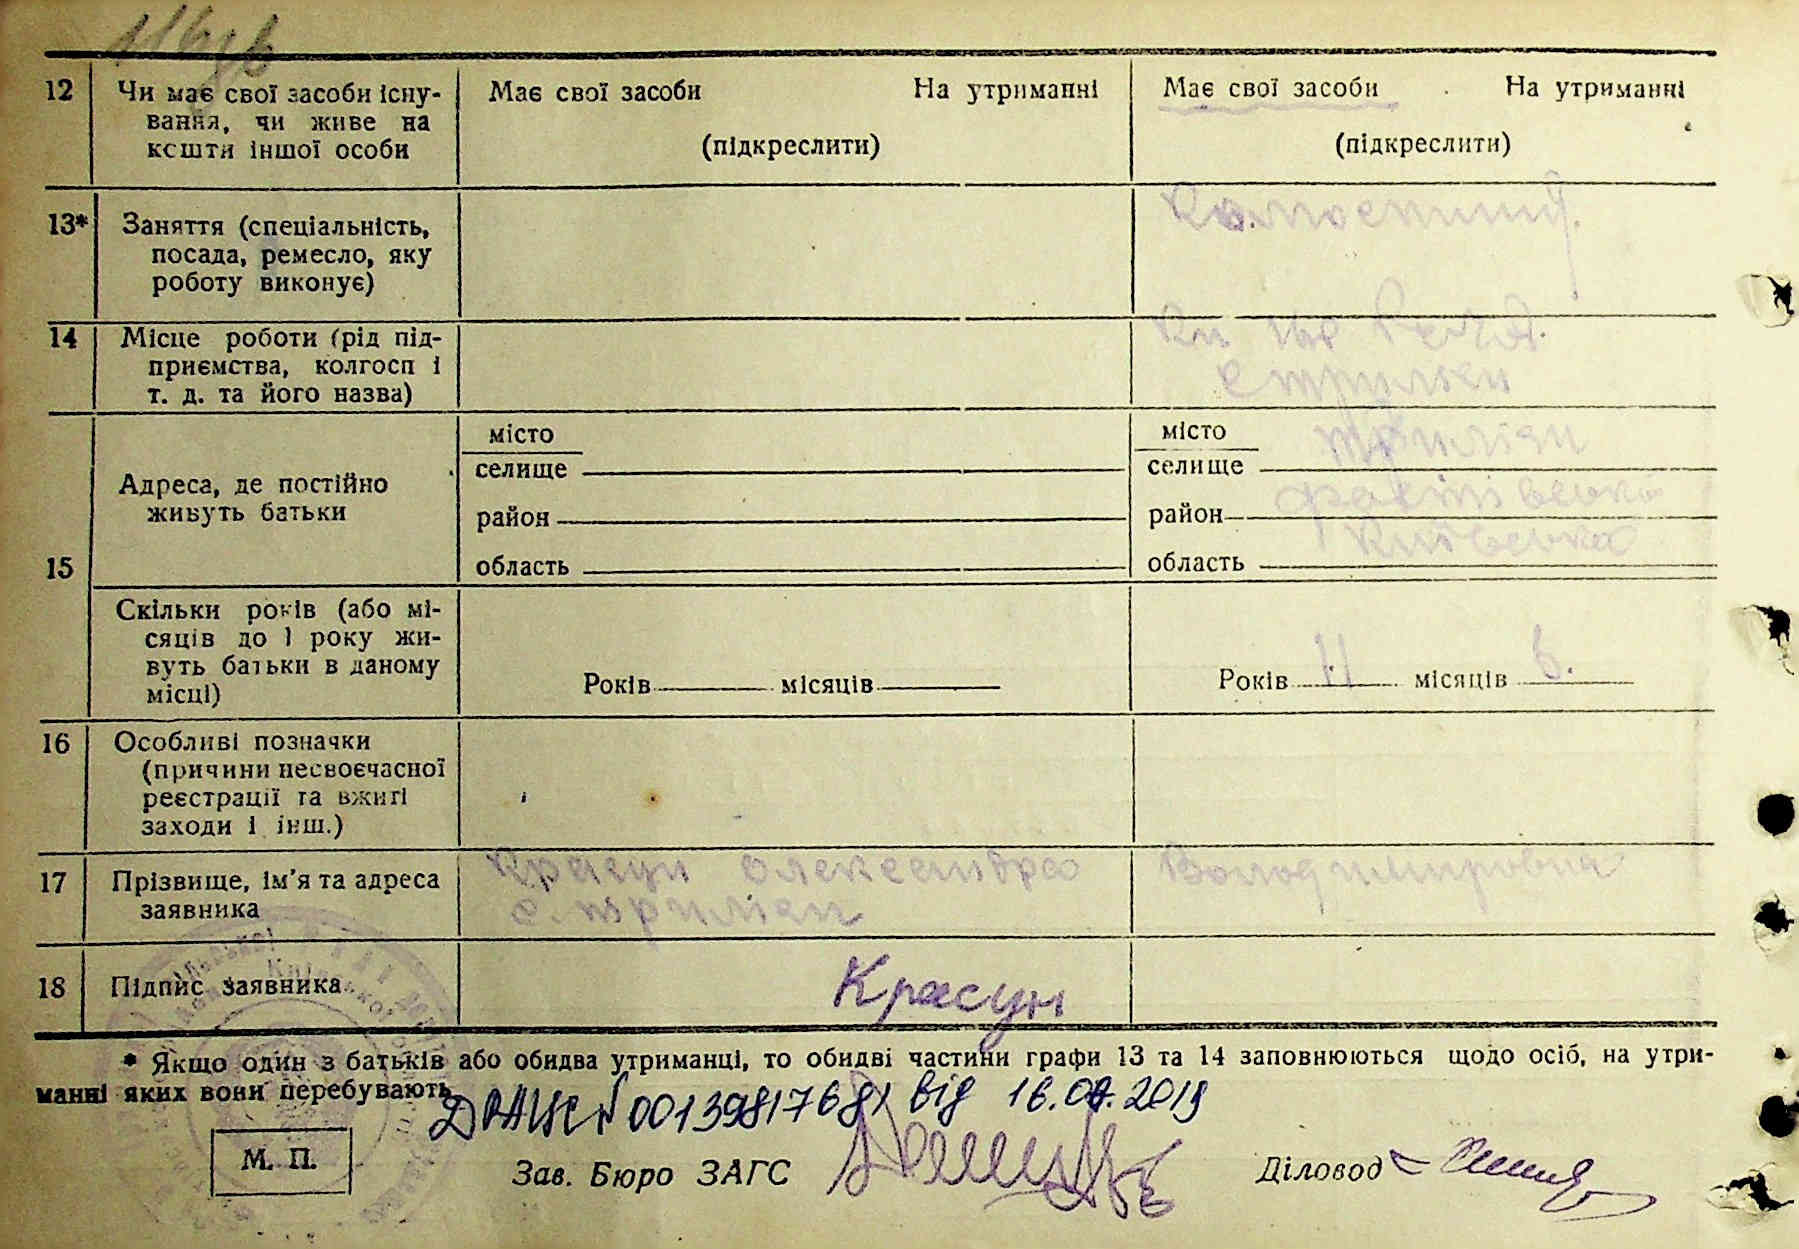 12 Чи має свої засоби існу-
вання, чи живе на
кошти іншої особи
Має свої засоби На утриманні
(підкреслити)
Має свої засоби На утриманні
(підкреслити)
13* Заняття (спеціальність,
посада, ремесло, яку
роботу виконує)
14 Місце роботи (рід під-
приємства, колгосп і
т. д. та його назва)
15
Адреса, де постійно
живуть батьки
місто
селище
район
область
місто
селище
район
область
Київська
Скільки років (або мі-
сяців до 1 року жи-
вуть батьки в даному
місці)
Років місяців
Років 11 місяців 6.
16 Особливі позначки
(причини несвоєчасної
реєстрації та вжиті
заходи і інш.)
17 Прізвище, ім'я та адреса
заявника
Красун Олександра Володимирівна
18 Підпис заявника
Красун
* Якщо один з батьків або обидва утриманці, то обидві частини графи 13 та 14 заповнюються щодо осіб, на утри-
манні яких вони перебувають
ДРАЦС № 00139817681 від 16.07.2019
М. П.
Зав. Бюро ЗАГС
Діловод